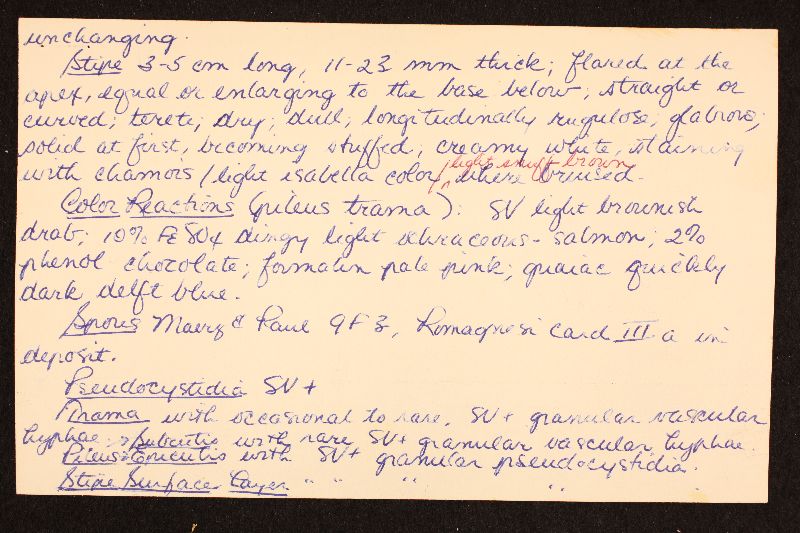 unchanging.
Stipe 3-5 cm long, 11-23 mm thick; flared at the
apex, equal or enlarging to the base below; straight or
curved; terete; dry; dull; longitudinally rugulose; glabrous;
solid at first, becoming stuffed; creamy white, staining
light snuff brown
with chamois / light isabella color, where bruised.
Color Reactions (pileus trama): SV light brownish
drab; 10% FeSO4 dingy light ochraceous-salmon; 2%
phenol chocolate; formalin pale pink; guaiac quickly
dark delft blue.
Spores Maerz & Paul 9F3, Romagnesi card III a in
deposit.
Pseudocystidia SV+
Trama with occasional to rare, SV+ granular vascular
hyphae; Subcutis with rare SV+ granular vascular hyphae.
Pileus Epicutis with SV+ granular pseudocystidia.
Stipe Surface Layer " " " " "